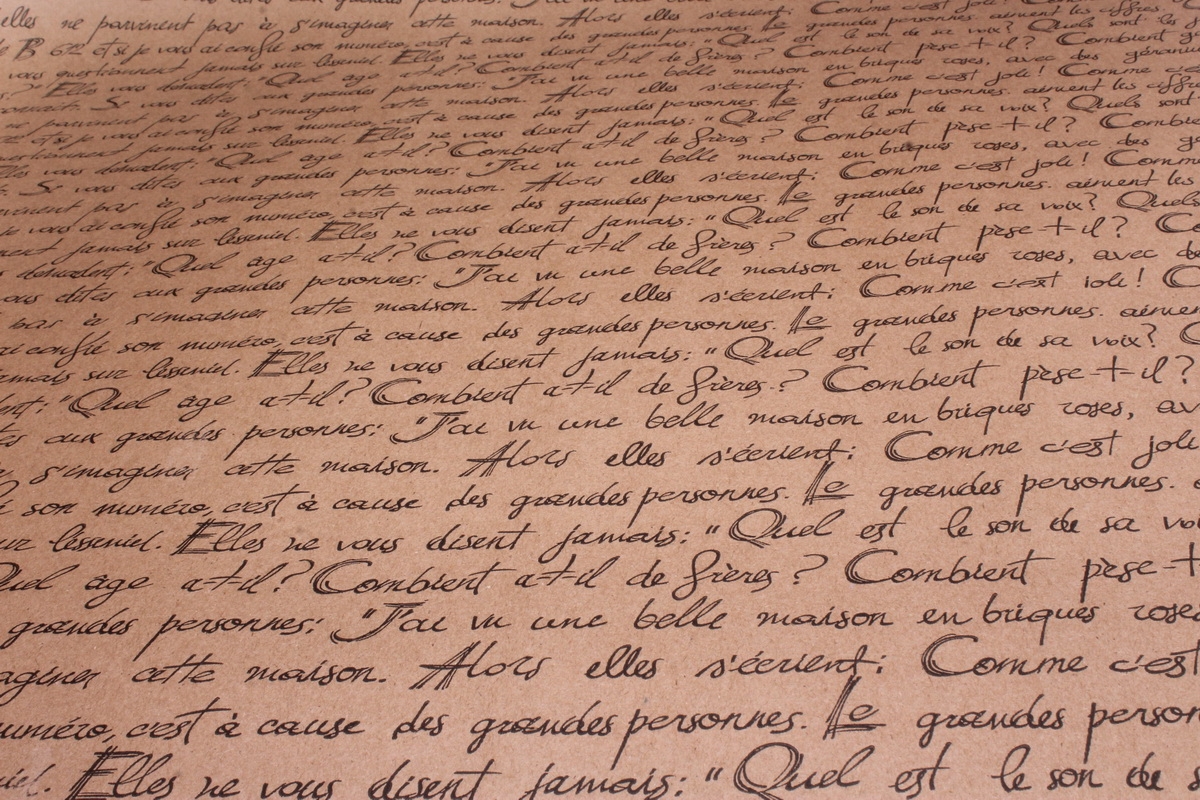 elles ne parvinent pas à s'imaginer cette maison. Alors elles s'écrient: Comme c'est joli!
B 612 et si je vous ai confié son numéro, c'est à cause des grandes personnes. Le grandes personnes. aiment les chiffres.
vous questionnent jamais sur l'esseniel. Elles ne vous disent jamais: "Quel est le son de sa voix? Quels sont les
Elles vous demandent: "Quel age a-t-il? Combient a-t-il de frères? Combient pèse-t-il? Combient
Si vous dites aux grandes personnes: "J'ai vu une belle maison en briques roses, avec des géranium
ne parvinent pas à s'imaginer cette maison. Alors elles s'écrient: Comme c'est joli! Comme
et si je vous ai confié son numéro, c'est à cause des grandes personnes. Le grandes personnes. aiment les chiffres
questionnent jamais sur l'esseniel. Elles ne vous disent jamais: "Quel est le son de sa voix? Quels sont
Elles vous demandent: "Quel age a-t-il? Combient a-t-il de frères? Combient pèse-t-il?
Si vous dites aux grandes personnes: "J'ai vu une belle maison en briques roses, avec des
pas à s'imaginer cette maison. Alors elles s'écrient: Comme c'est joli! Comme
je vous ai confié son numéro, c'est à cause des grandes personnes. Le grandes personnes. aiment les
jamais sur l'esseniel. Elles ne vous disent jamais: "Quel est le son de sa voix? Quels
demandent: "Quel age a-t-il? Combient a-t-il de frères? Combient pèse-t-il?
vous dites aux grandes personnes: "J'ai vu une belle maison en briques roses, avec
pas à s'imaginer cette maison. Alors elles s'écrient: Comme c'est joli!
ai confié son numéro, c'est à cause des grandes personnes. Le grandes personnes. aiment
jamais sur l'esseniel. Elles ne vous disent jamais: "Quel est le son de sa voix?
"Quel age a-t-il? Combient a-t-il de frères? Combient pèse-t-il?
aux grandes personnes: "J'ai vu une belle maison en briques roses, av
s'imaginer cette maison. Alors elles s'écrient: Comme c'est joli
son numéro, c'est à cause des grandes personnes. Le grandes personnes.
sur l'esseniel. Elles ne vous disent jamais: "Quel est le son de sa voi
Quel age a-t-il? Combient a-t-il de frères? Combient pèse-t
grandes personnes: "J'ai vu une belle maison en briques rose
aginer cette maison. Alors elles s'écrient: Comme c'est
numéro, c'est à cause des grandes personnes. Le grandes person
niel. Elles ne vous disent jamais: "Quel est le son de s